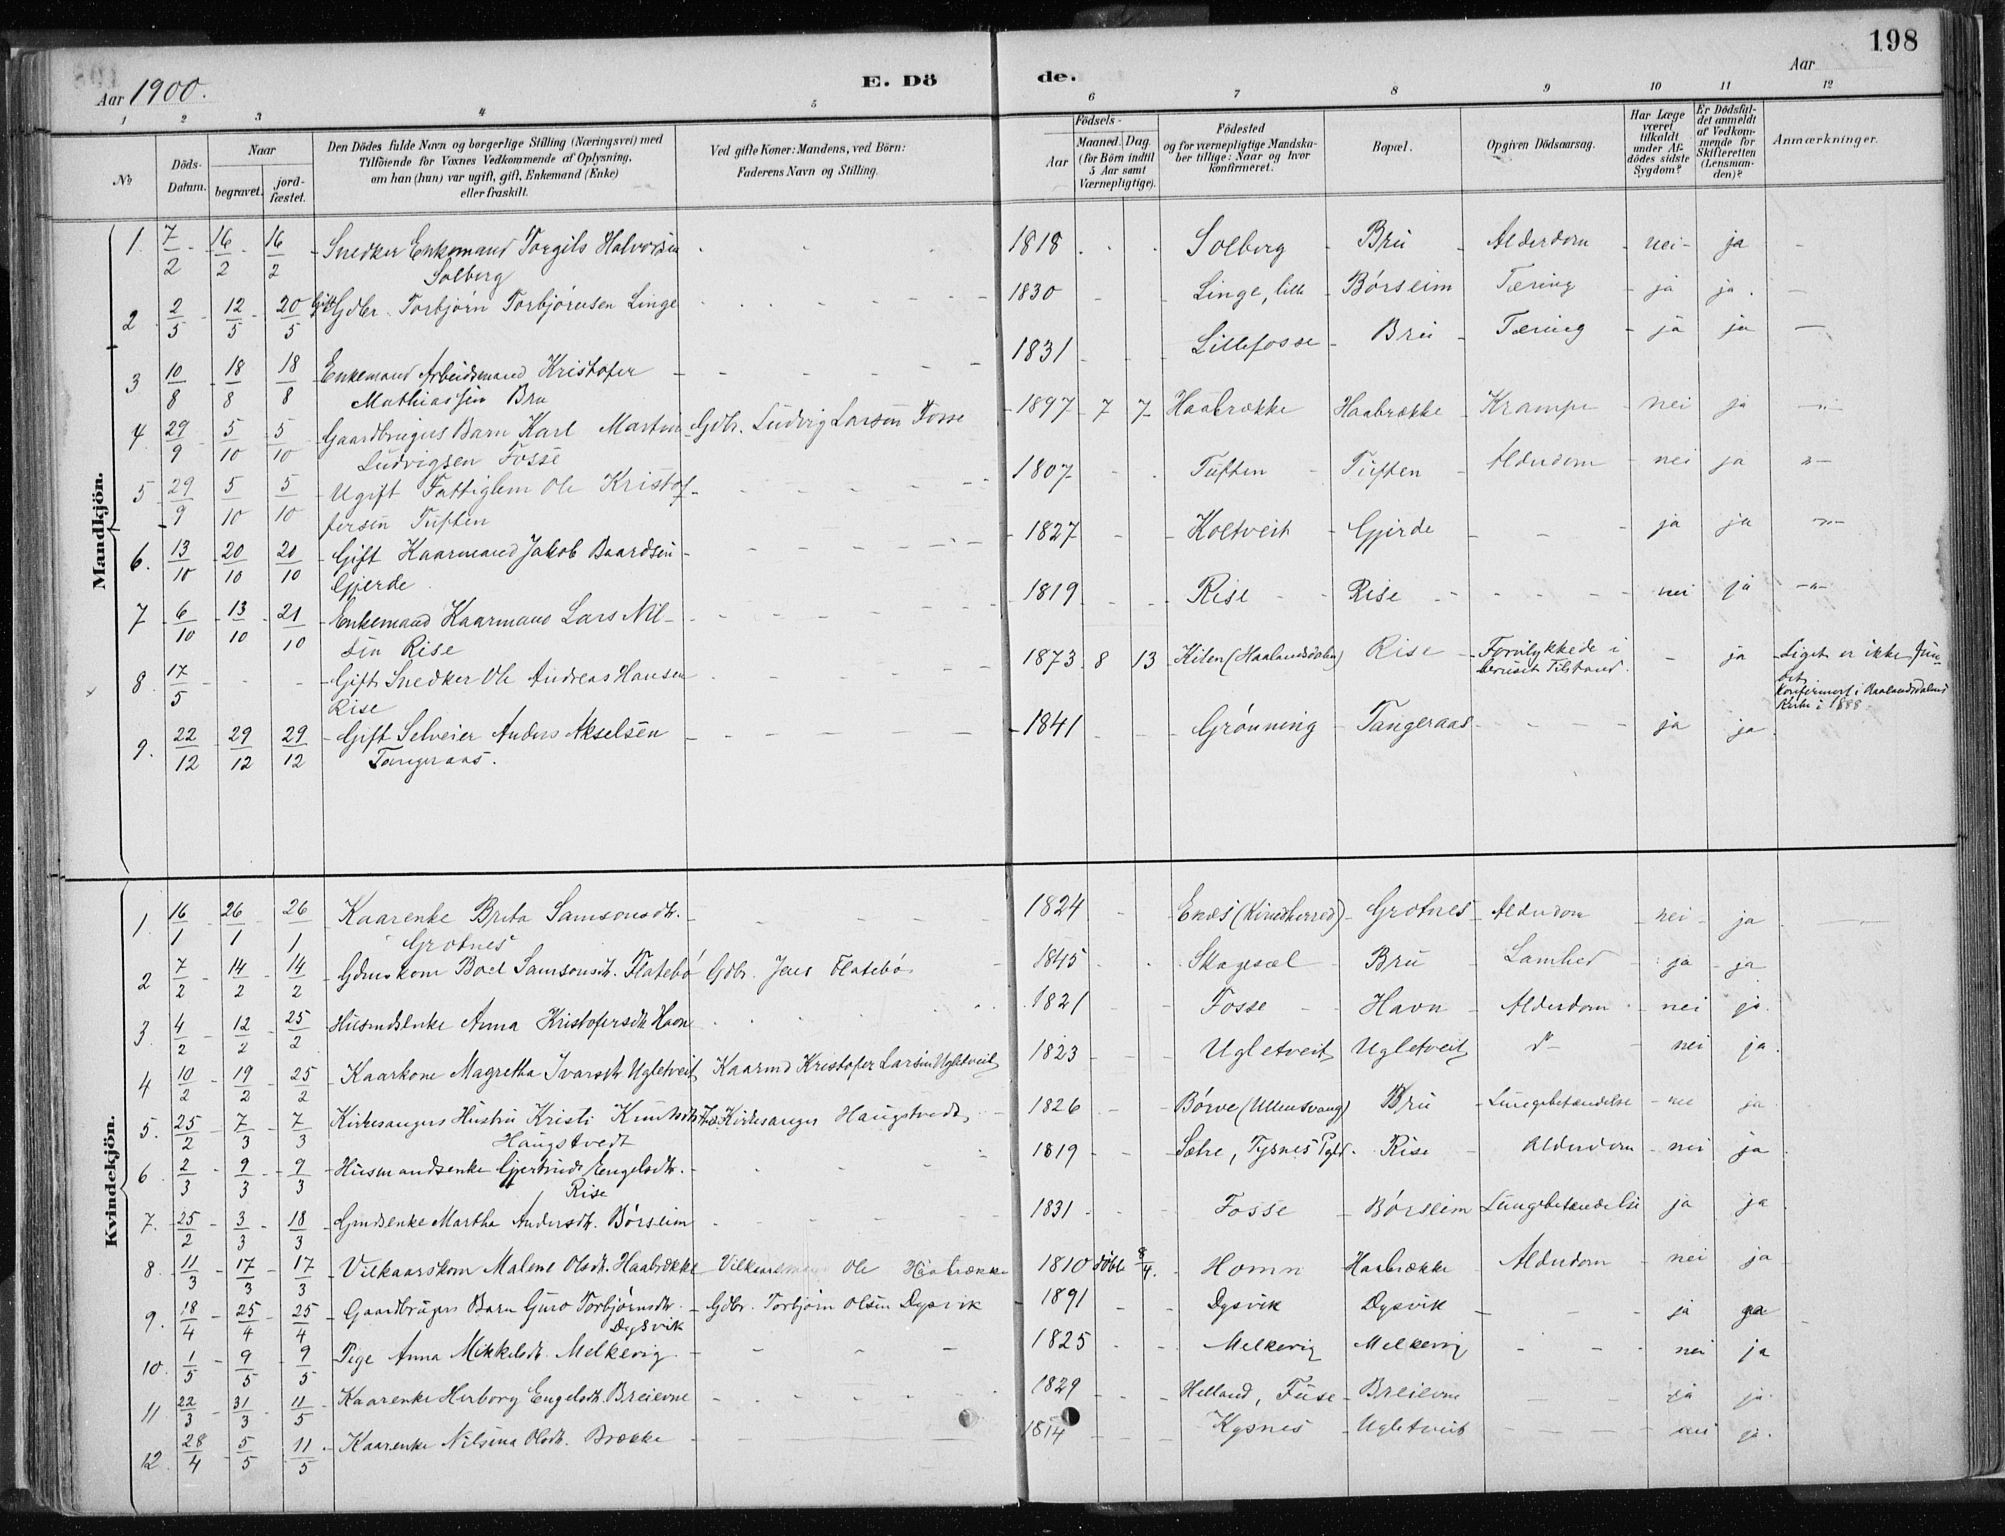 198
Aar 1900.
E. Dö de.
Aar
1 2 3 4 5 6 7 8 9 10 11 12
№
Döds-Datum.
Naar
begravet.
jord-fæstet.
Den Dödes fulde Navn og borgerlige Stilling (Næringsvei) med
Tilföiende for Voxnes Vedkommende af Oplysning,
om han (hun) var ugift, gift, Enkemand (Enke)
eller fraskilt.
Ved gifte Koner: Mandens, ved Börn:
Faderens Navn og Stilling.
Födsels-
Aar
Maaned. Dag.
(for Börn indtil
5 Aar samt
Værnepligtige).
Födested
og for værnepligtige Mandska-
ber tillige: Naar og hvor
konfirmeret.
Bopæl.
Opgiven Dödsaarsag.
Har Læge
været
tilkaldt
under Af-
dödes sidste
Sygdom?
Er Dödsfal-
det anmeldt
af Vedkom-
mende for
Skifteretten
(Lensman-
den)?
Anmærkninger.
Mandkjön.
1. 7/2 - 16/2 - 16/2 - Snedker Enkemand Torgils Halvorsen Solberg 1818 Solberg - Bru - Alderdom - nei - ja -
2 2/5 - 12/5 - 20/5 Gift Gdbr. Torbjørn Torbjørnsen Linge 1830 Linge, lille - Børseim Tæring - ja ja. -
3 10/8 - 18/8 18/8 - Enkemand Arbeidsmand Kristofer Mathiassen Bru 1831 Lillefosse - Bru - Tæring - ja ja -
4 29/9 - 5/10 - 5/10 Gaardbrugers Barn Karl Martin Ludvigsen Fosse Gdbr. Ludvig Larsen Fosse 1897 - 7 7 Haabrække Haabrække - Krampe - nei ja -"-
5 29/9 5/10 5/10 - Ugift Fattiglem Ole Kristoffersen Tuften 1807 - Tuften - Tuften - Alderdom - nei ja "-
6. 13/10 - 20/10 20/10 - Gift Kaarmand Jakob Baardsen Gjerde 1827 - Holtveit - Gjerde - - - ja ja -"-
7 6/10 - 13/10 - 21/10 - Enkemand Kaarmand Lars Nilsen Rise 1819 - Rise - Rise - - nei ja -"-
8. 17/5 - - - Gift Snedker Ole Andreas Hansen Rise 1873 8 13 Kilen (Haalandsdalen) Rise - Forulykkede i beruset Tilstand. - ja - Liget er ikke fundet. Konfirmert i Haalandsdalens Kirke i 1888
9. 22/12 - 29/12 29/12 - Gift Selveier Anders Akselsen Tangeraas. 1841 - Grønning - Tangeraas - ja ja.
Kvindekjön.
1. 16/1 - 26/1 - 26/1 Kaarenke Brita Samsonsdt. Grotnes 1824 Enæs (Kvindherred) - Grotnes - Alderdom - nei - ja
2 7/2 - 14/2 - 14/2 - Gdmskone Boel Samsonsdt. Flatebø Gdbr. Jens Flatebø 1845 Skagesæl - Bru - Lamhed - ja - ja
3. 4/2 - 12/2 25/2 - Husmdsenke Anna Kristofersdt. Havn 1821 - Fosse - Havn - Alderdom - nei - ja.
4 10/2 - 19/2 - 25/2 - Kaarkone Magretha Ivarsdt. Ugletveit Kaarmd Kristofer Larsen Ugletveit 1823 - Ugletveit Ugletveit do - nei ja.
5. 25/2 - 7/3 - 7/3 - Kirkesangers Hustru Kristi Knutsdt. Haugstvedt Kirkesanger Haugstvedt 1826 - Børve (Ullensvang) Bru - Lungebetændelse - nei ja.
6 2/3 - 9/3 - 9/3 - Husmandsenke Gjertrude Engelsdt. Rise 1819 - Sætre, Tysnes Pgld. - Rise - Alderdom - nei ja
7. 25/2 - 3/3 - 18/3 - Gmdsenke Martha Andersdt. Børseim 1831 - Fosse - Børseim - Lungebetændelse ja ja.
8 11/3 - 17/3 - 17/3 - Vilkaarskone Malene Olsdt. Haabrække Vilkaarsmand Ole Haabrække 1810 døbt 8/4. - Homn - Haabrække - Alderdom - nei ja
9. 18/4 - 25/4 - 25/4 - Gaardbrugers Barn Guro Torbjørnsdt. Dysvik - Gdbr. Torbjørn Olsen Dysvik - 1891 - Dysvik Dysvik - ja ja
10. 1/5 - 9/5 - 9/5 - Pige Anna Mikkelsdt. Melkevig 1825 - Melkevig Melkevig - - nei ja
11 22/3 - 31/3 - 11/5 - Kaarenke Herborg Engelsdt. Breievne 1829 - Helland, Fuse - Breievne - ja ja.
12. 28/4 - 5/5 11/5 - Kaarenke Nilsina Olsdt. Brække 1814 - Kysnes - Ugletveit - - nei ja.